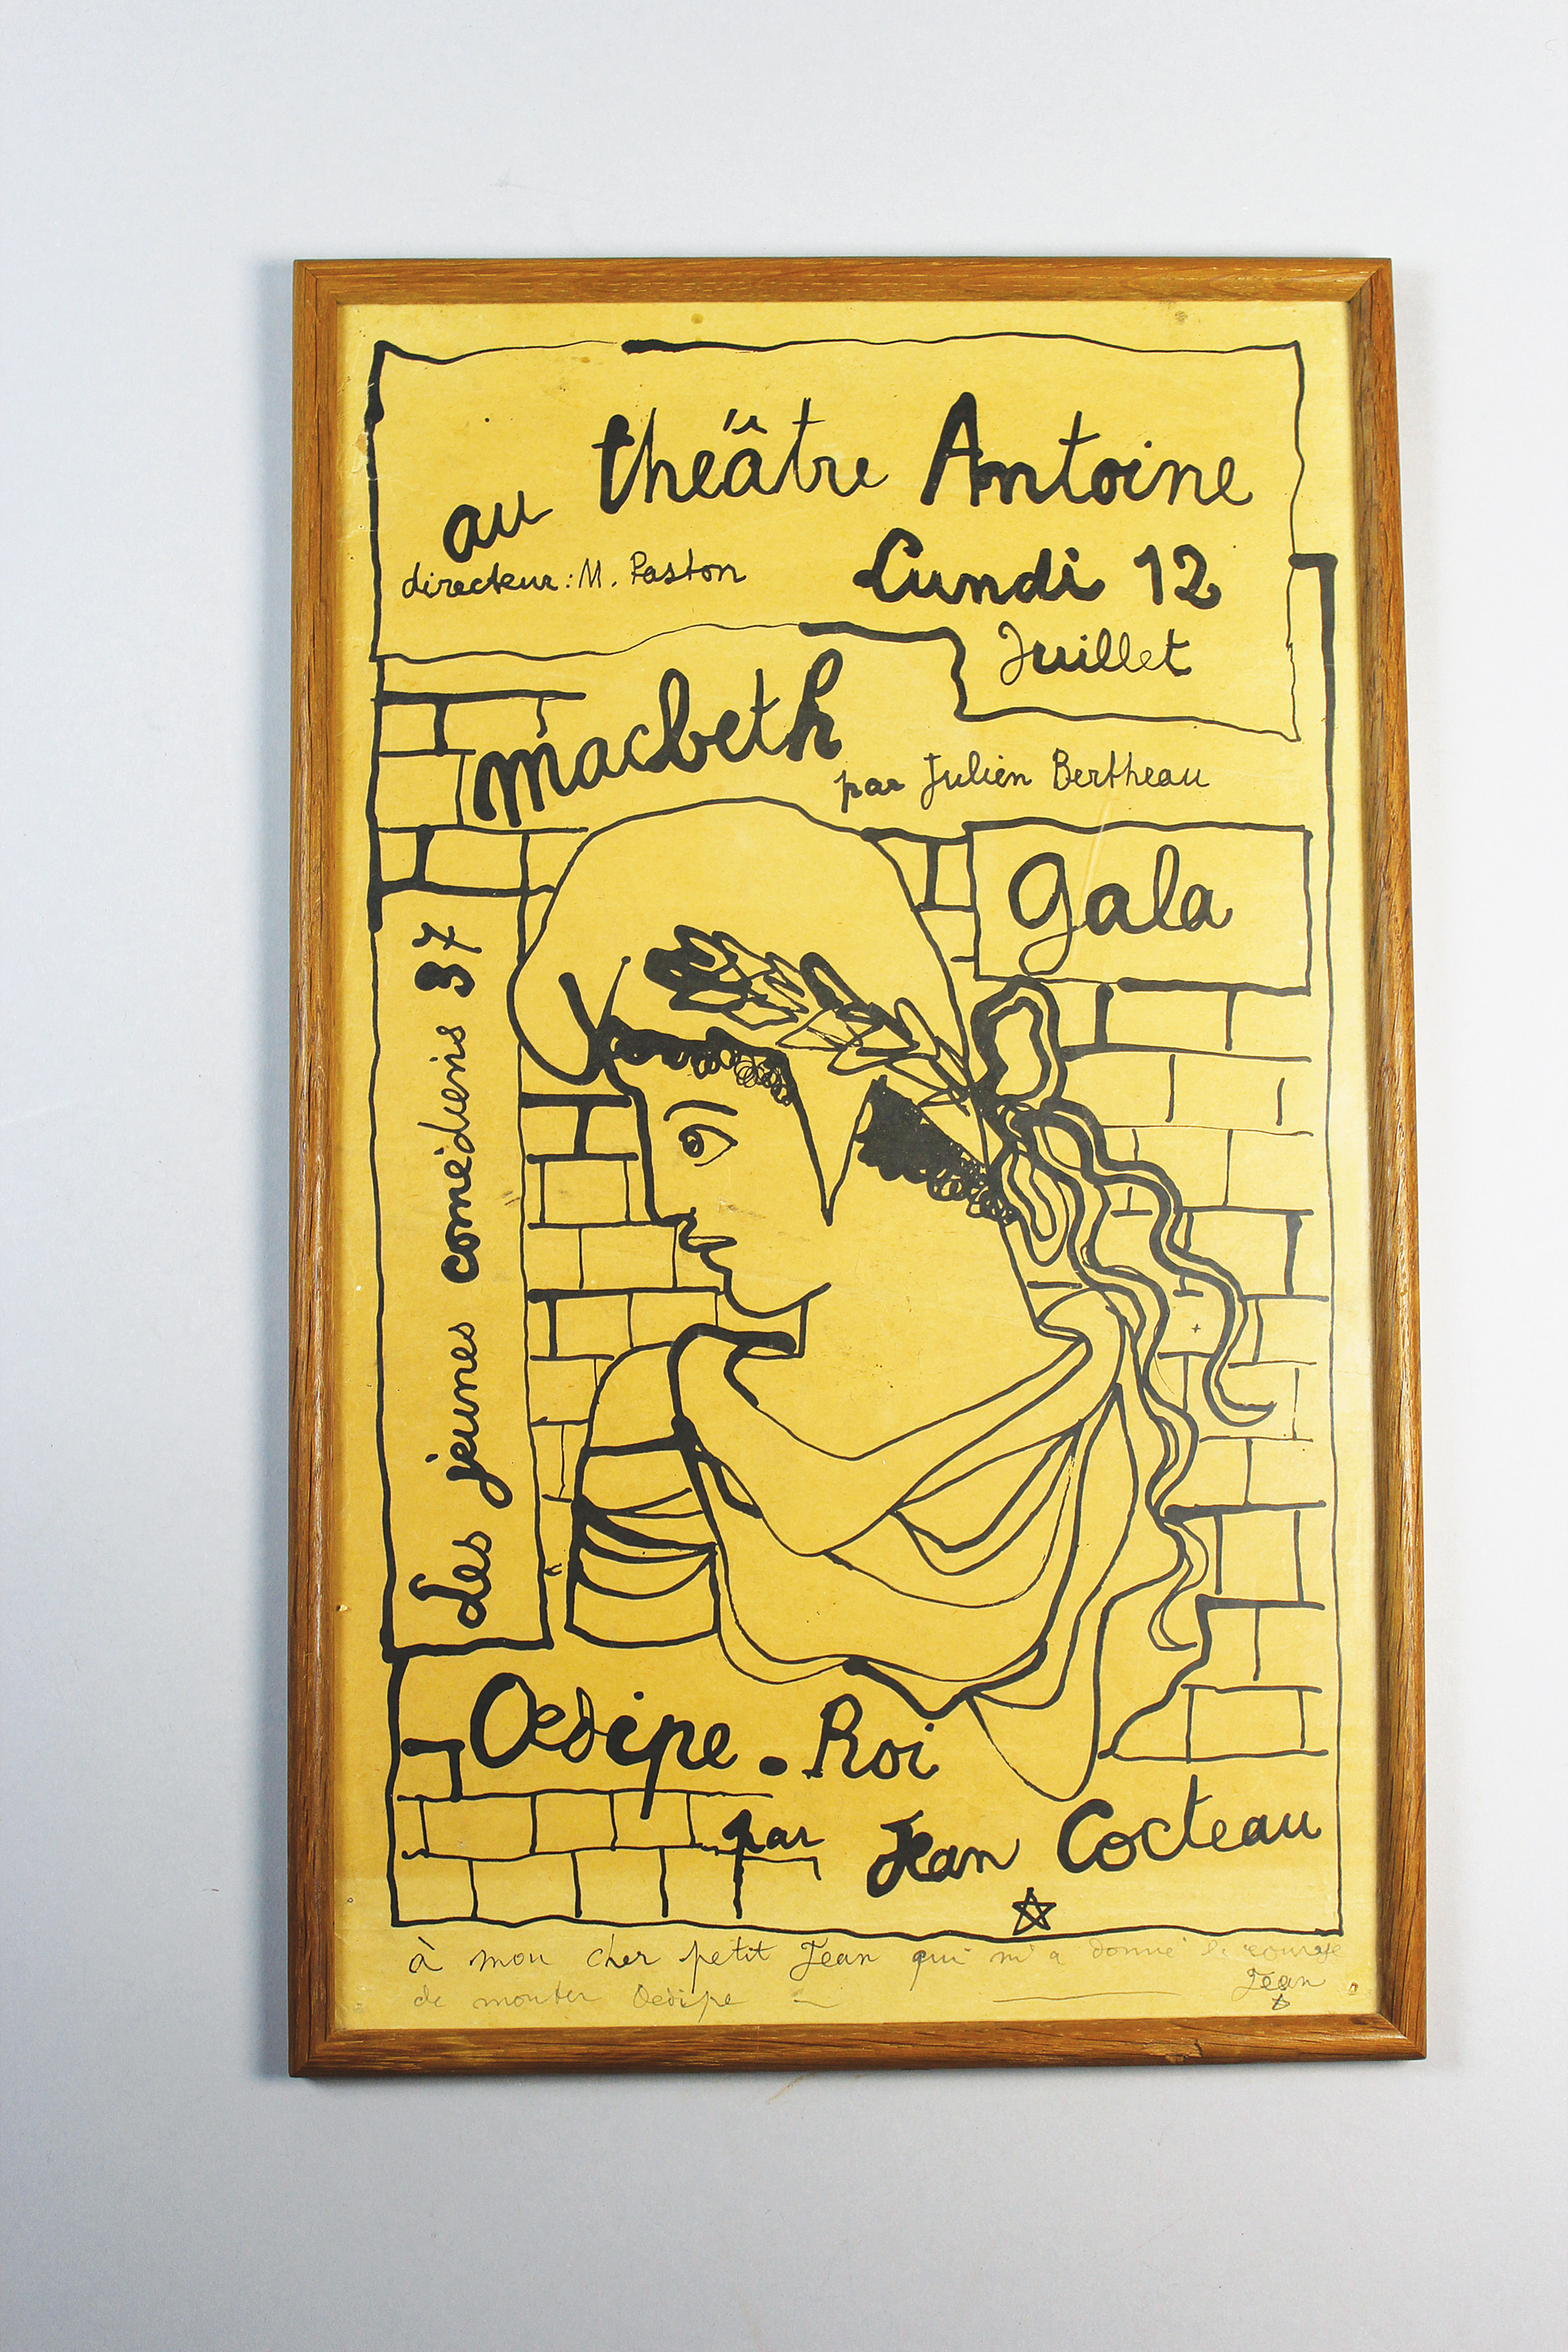 au théâtre Antoine
directeur : M. Paston
Lundi 12
Juillet
macbeth
par Julien Bertheau
Gala
des jeunes comédiens 37
Oedipe. Roi
par Jean Cocteau
à mon cher petit Jean qui m'a donné le courage
de monter Oedipe
Jean